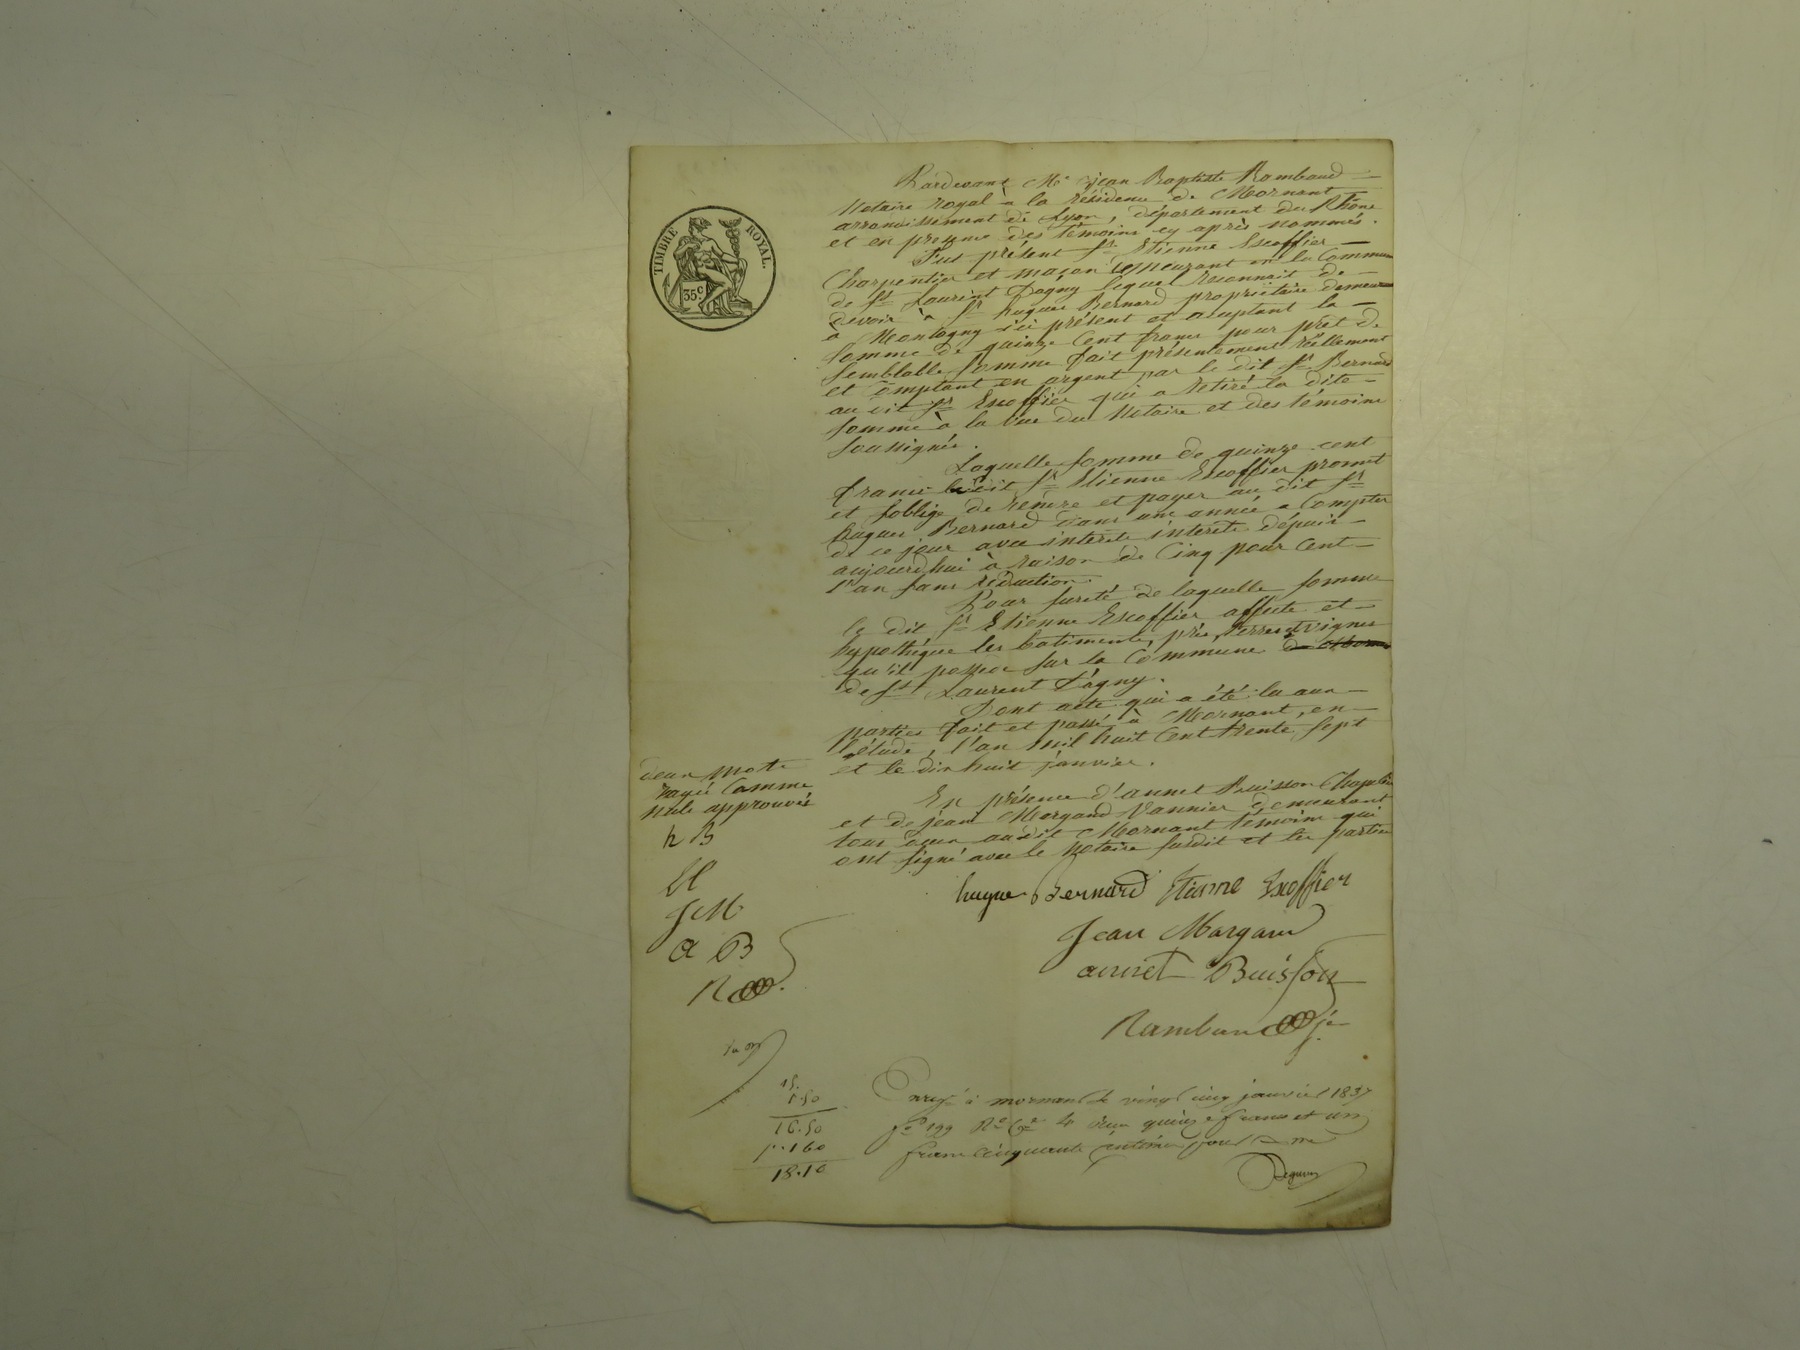 TIMBRE ROYAL.
35 c
Pardevant Me jean Baptiste Rambaud
Notaire royal à la résidence de Mornant
arrondissement de Lyon, département du Rhône
et en presence des témoins cy après nommés.
Fut présent Sr Etienne Escoffier
Charpentier et maçon demeurant en la Commune
de St Laurent D'agny lequel Reconnait de
devoir à Sr hugue Bernard propriétaire demeurant
à Montagny ici présent et acceptant la
Somme de quinze Cent francs pour prêt de
Semblable Somme fait présentement réellement
et Comptant en argent par le dit Sr Bernard
au dit Sr Escoffier qui a retiré la dite
Somme à la vue du Notaire et des témoins
Soussignés.
Laquelle Somme de quinze cent
francs le dit Sr Etienne Escoffier promet
et S'oblige de rendre et payer au dit Sr
hugue Bernard dans une année a Compter
de ce jour avec intérêts intérêts dépuis
aujourd'hui à raison de Cinq pour Cent
l'an Sans réduction.
Pour Sureté de laquelle Somme
le dit Sr Etienne Escoffier affecte et
hypothéque les batiments, prés, terres et vignes
qu'il possede Sur la Commune de Morna
de St Laurent D'agny.
Dont acte qui a été lu aux
parties fait et passé à Mornant, en
l'étude, l'an mil huit Cent trente Sept
et le dix huit janvier.
En présence d'annet Buisson Chapelier
et de jean Margand Vannier demeurant
tous deux audit Mornant témoins qui
ont Signé avec le Notaire Susdit et les parties
deux mots
rayés Comme
nuls approuvés
h B
EE
J M
a B
R
hugue Bernard Etienne Escoffier
Jean Margand
annet Buisson
Rambaud
15.
1.50
16.50
1.60
18.10
Enregé à mornant le vingt cinq janvier 1837
fo 199 Ro Ce 4 Reçu quinze francs et un
franc Cinquante Centimes pour